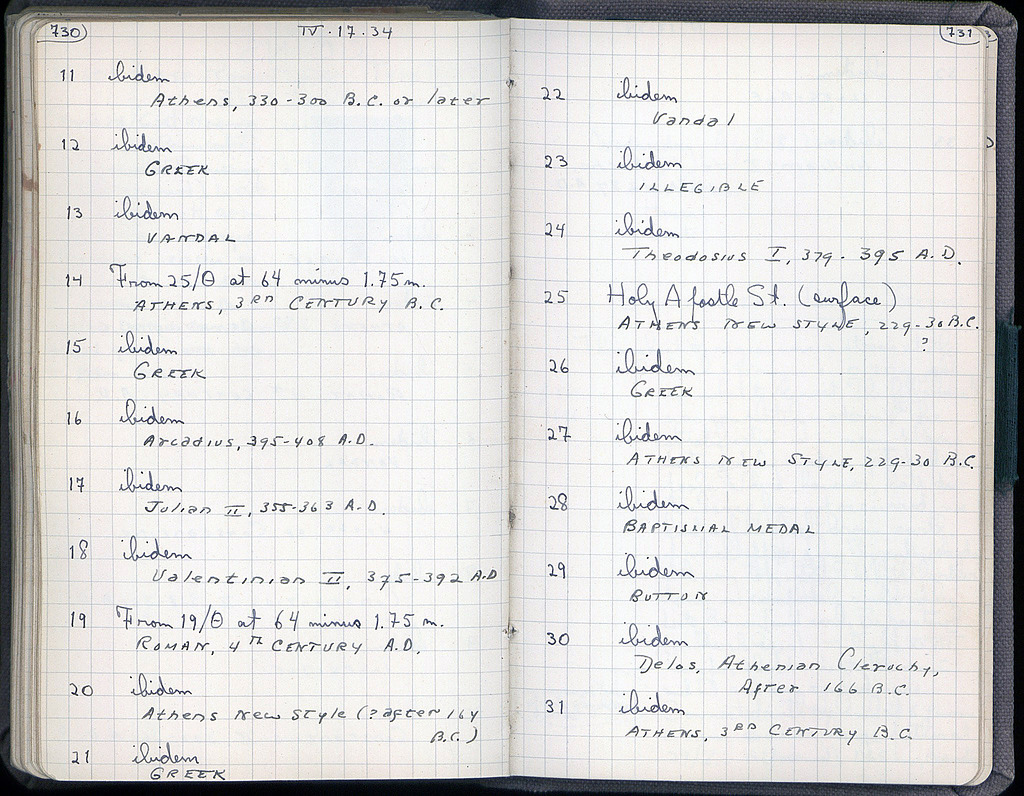 730
IV · 17 · 34
11 ibidem
Athens, 330-300 B.C. or later
12 ibidem
GREEK
13 ibidem
VANDAL
14 From 25/Θ at 64 minus 1.75 m.
ATHENS, 3RD CENTURY B.C.
15 ibidem
GREEK
16 ibidem
Arcadius, 395-408 A.D.
17 ibidem
Julian II, 355-363 A.D.
18 ibidem
Valentinian II, 375-392 A.D
19 From 19/Θ at 64 minus 1.75 m.
ROMAN, 4TH CENTURY A.D.
20 ibidem
Athens New Style (? after 164
B.C.)
21 ibidem
GREEK
731
22 ibidem
Vandal
23 ibidem
ILLEGIBLE
24 ibidem
Theodosius I, 379-395 A.D.
25 Holy Apostle St. (surface)
ATHENS NEW STYLE, 229-30 B.C.
?
26 ibidem
GREEK
27 ibidem
ATHENS NEW STYLE, 229-30 B.C.
28 ibidem
BAPTISMAL MEDAL
29 ibidem
BUTTON
30 ibidem
Delos, Athenian Cleruchy,
After 166 B.C.
31 ibidem
ATHENS, 3RD CENTURY B.C.